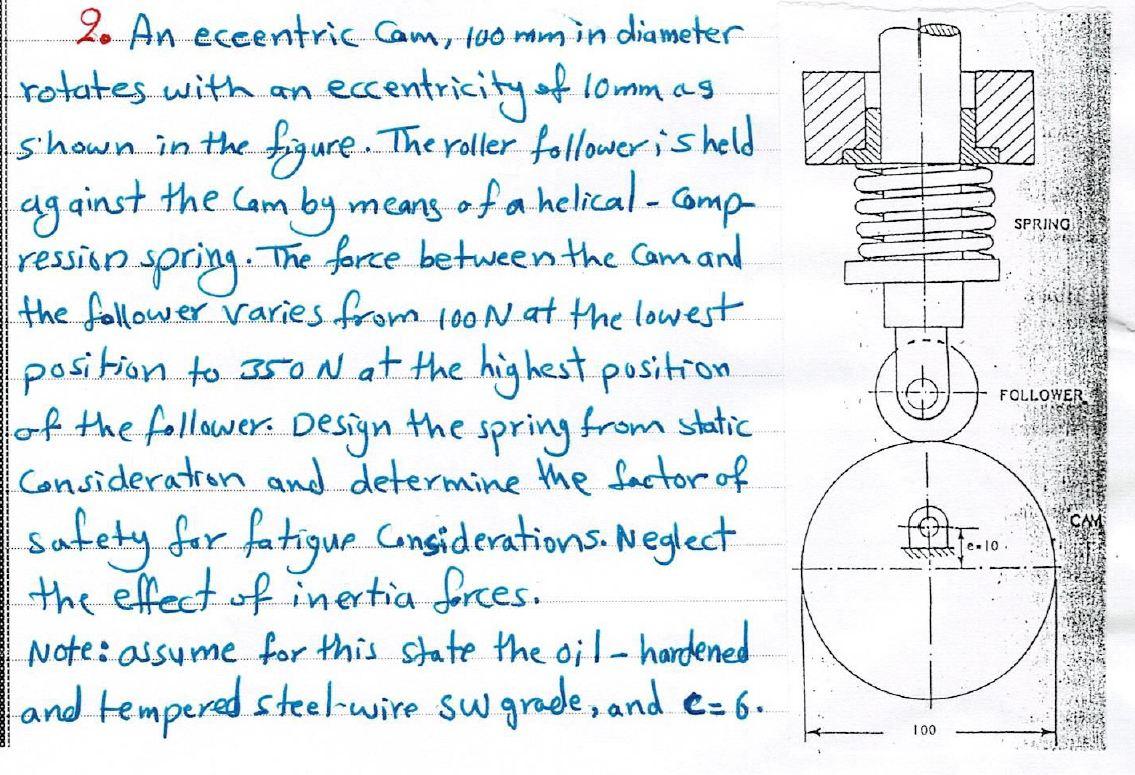 2. An eccentric Cam, 100 mm in diameter
rotates with an eccentricity of 10mm as
shown in the figure. The roller follower is held
against the Cam by means of a helical - Comp-
ression spring. The force between the Cam and
the follower varies from 100 N at the lowest
position to 350 N at the highest position
of the follower. Design the spring from static
Consideration and determine the factor of
safety for fatigue Considerations. Neglect
the effect of inertia forces.
Note: assume for this state the oil - hardened
and tempered steel-wire SW grade, and C = 6.
SPRING
FOLLOWER
CAM
e=10
100